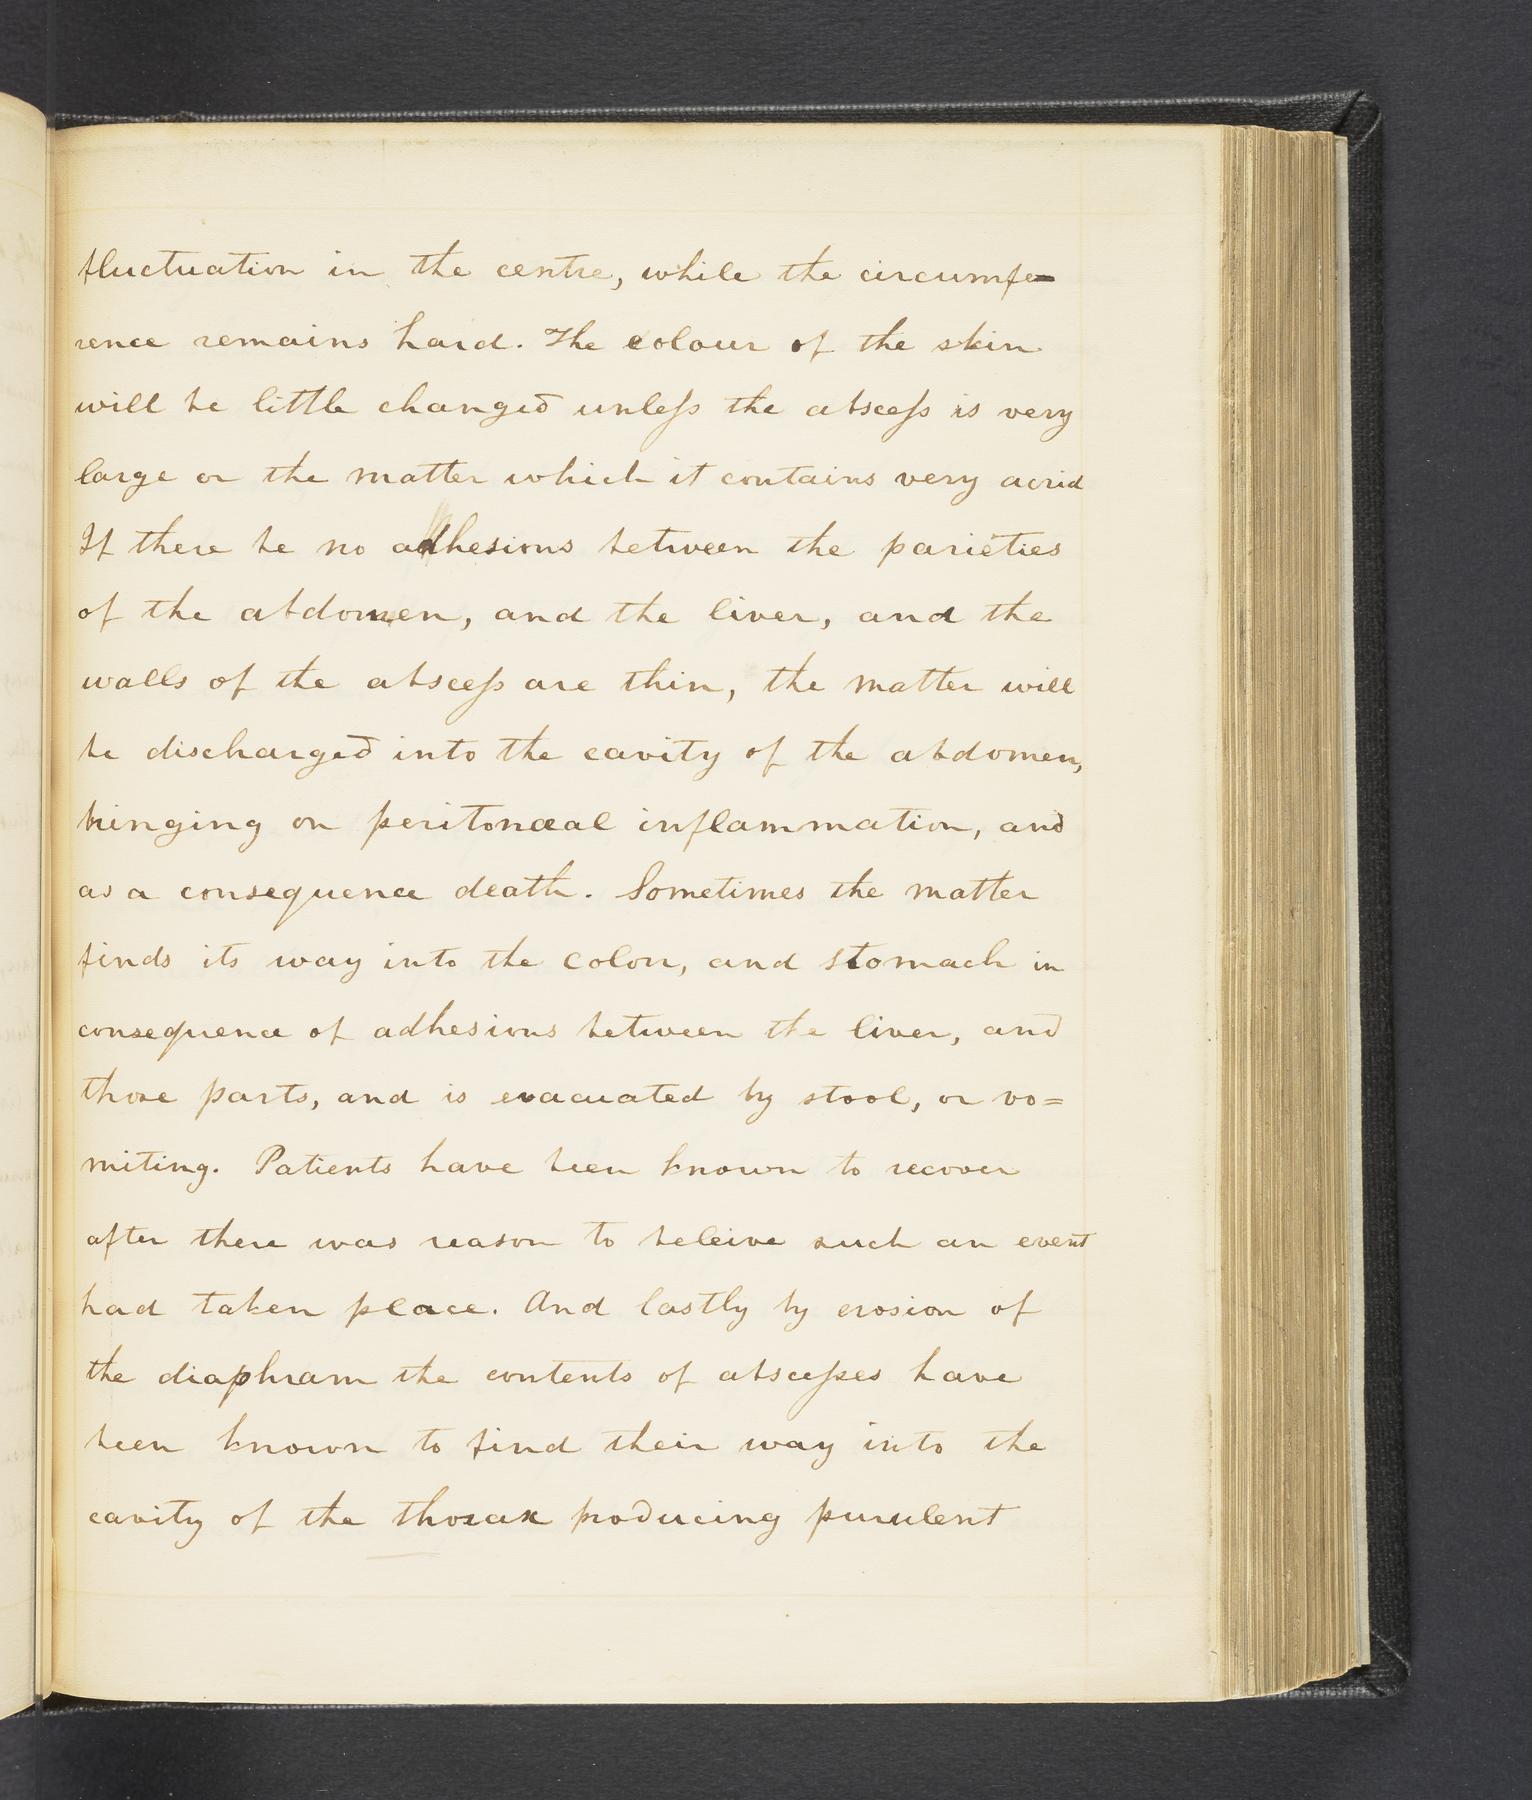 fluctuation in the centre, while the circumfe-
rence remains hard. The colour of the skin
will be little changed unleſs the absceſs is very
large or the matter which it contains very acrid
If there be no adhesions between the parieties
of the abdomen, and the liver, and the
walls of the absceſs are thin, the matter will
be discharged into the cavity of the abdomen,
bringing on peritonæal inflammation, and
as a consequence death. Sometimes the matter
finds its way into the colon, and stomach in
consequence of adhesions between the liver, and
those parts, and is evacuated by stool, or vo=
miting. Patients have been known to recover
after there was reason to beleive such an event
had taken place. And lastly by erosion of
the diaphram the contents of absceſses have
been known to find their way into the
cavity of the thorax producing purulent